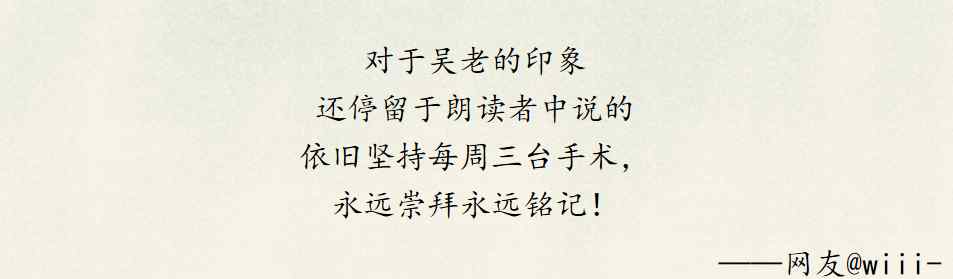 对于吴老的印象
还停留于朗读者中说的
依旧坚持每周三台手术，
永远崇拜永远铭记！
——网友@wiii-